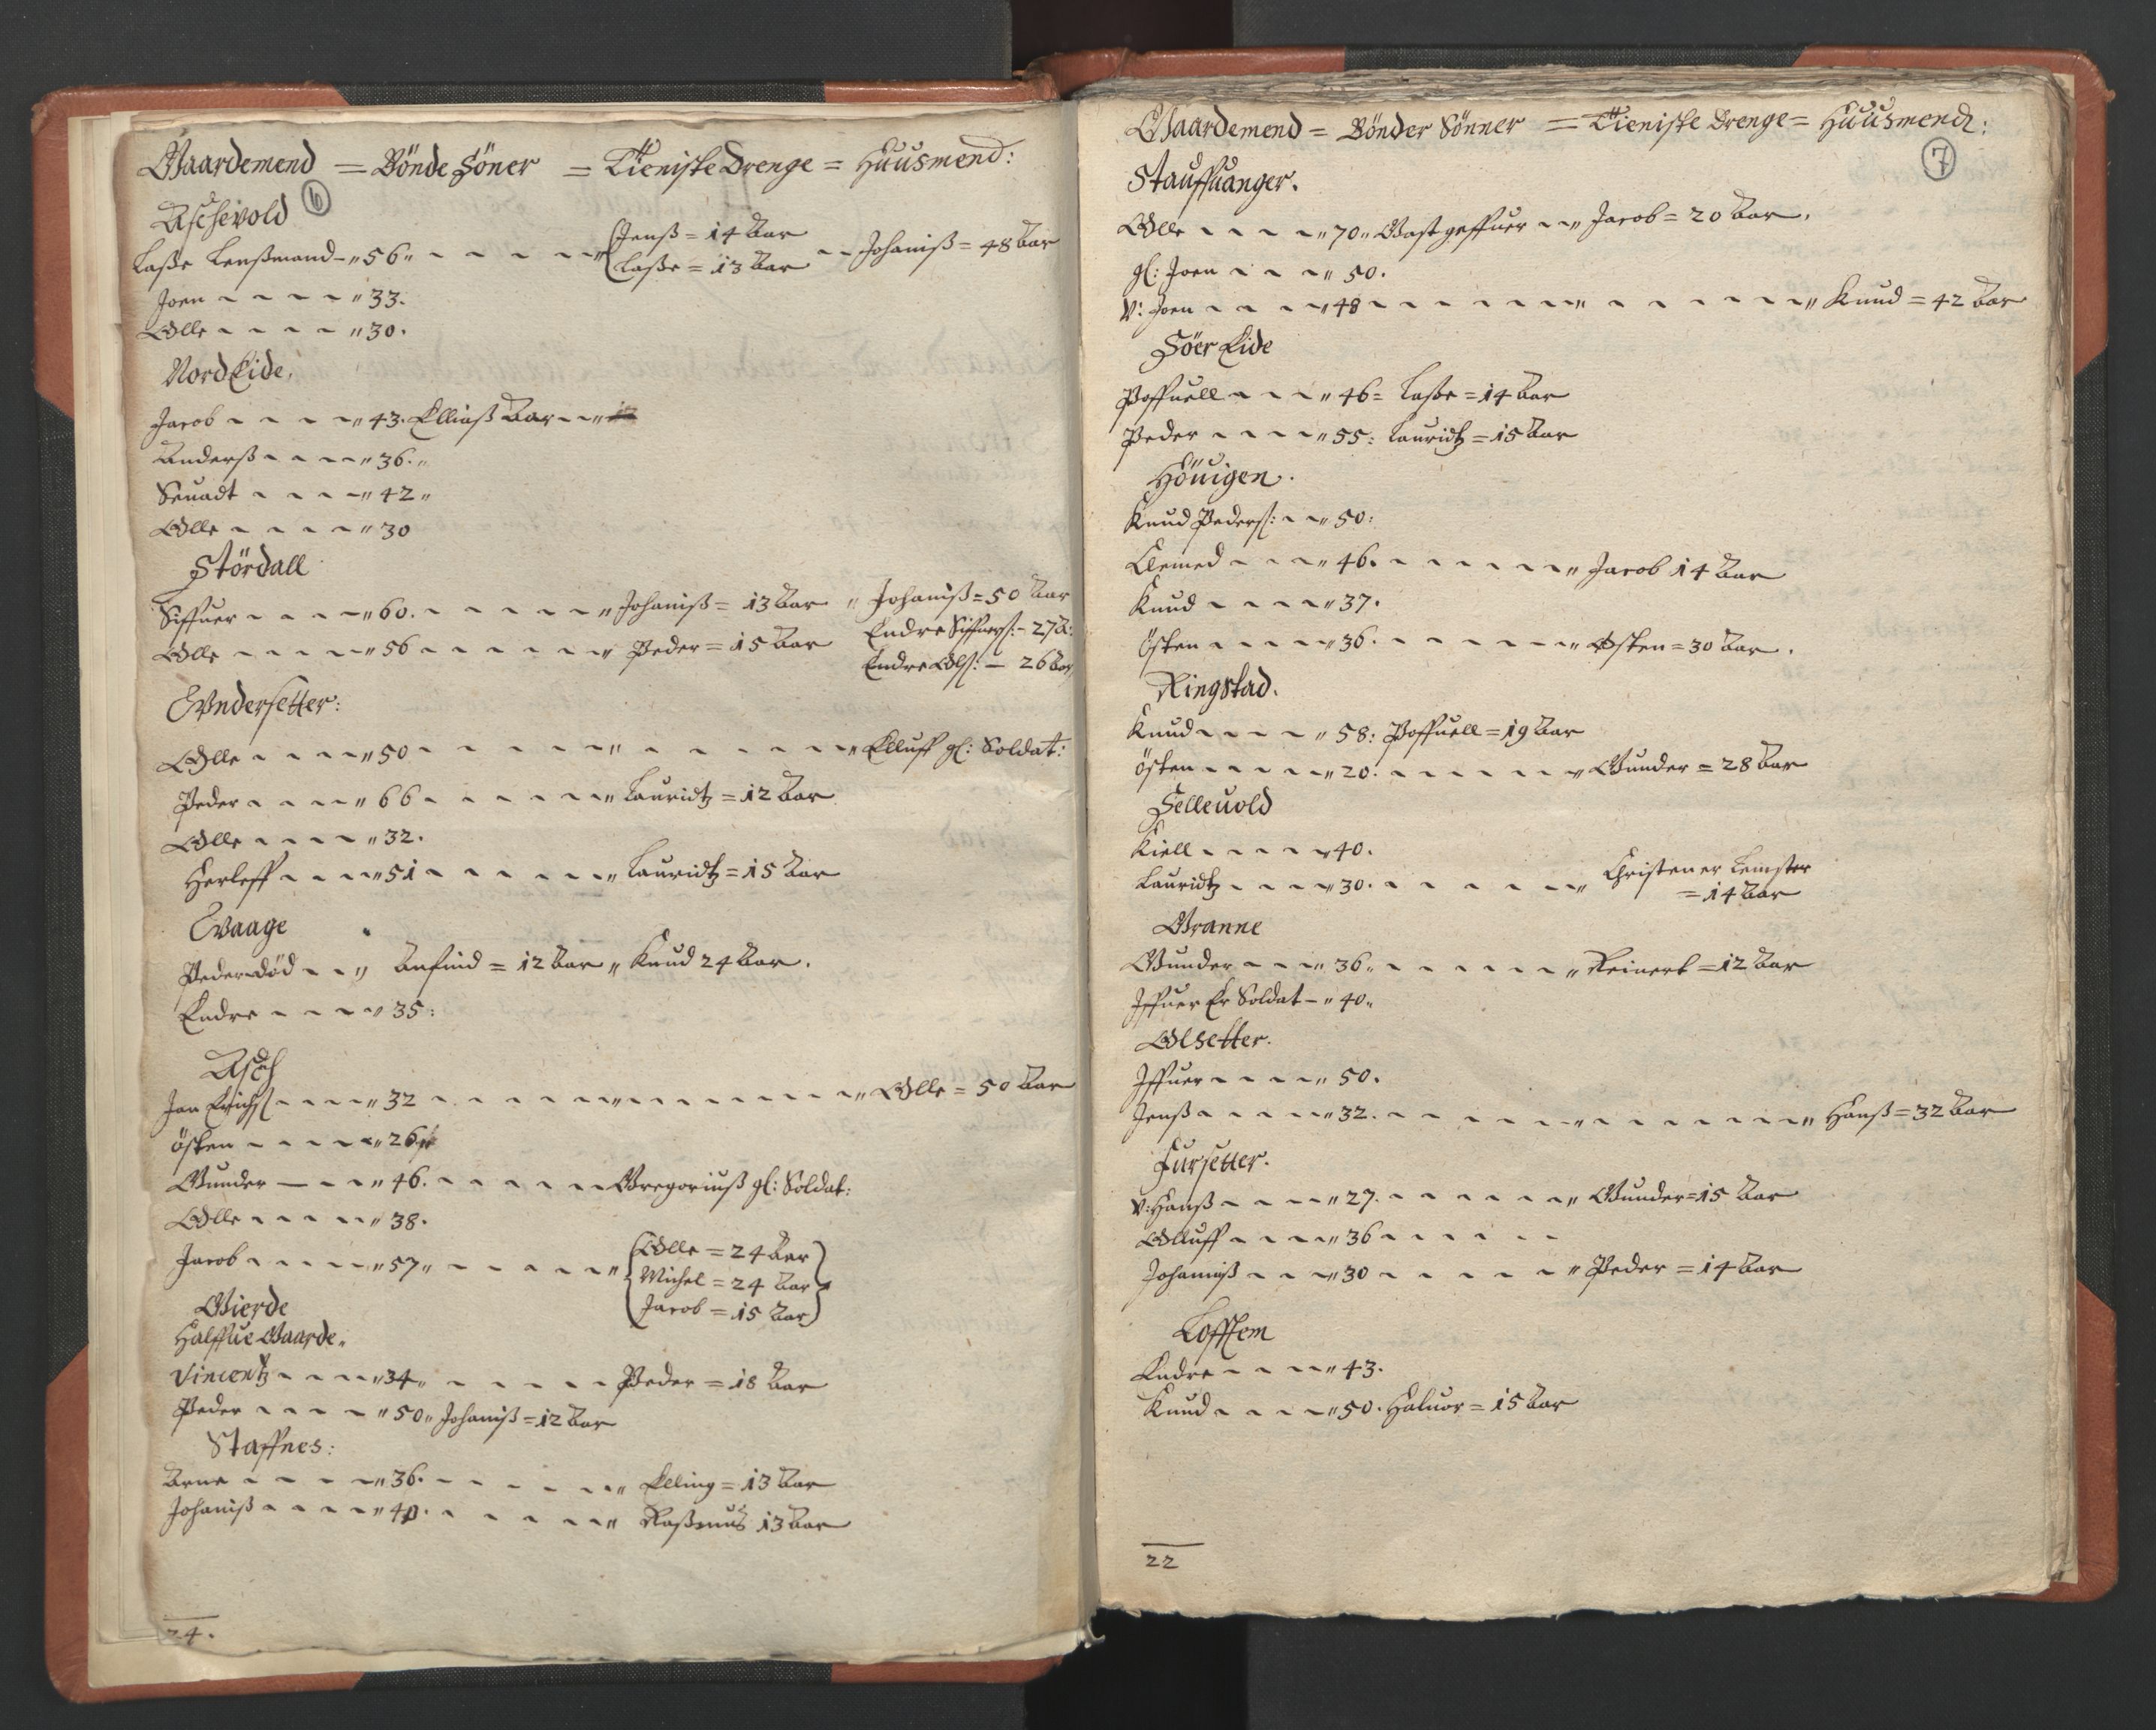 Gaardemend = Bönde Söner = Tieniste Drenge = Huusmend:
6
Aschevold
Lasse Lensmand - " 56 " - - - - " Jenß = 14 Aar - - Johaniß = 48 Aar
Lasse = 13 Aar
Joen - - - - " 33.
Olle - - - - " 30.
Nord Eide.
Jacob - - - - " 43. Elliaß Aar - - "
Anderß - - - - " 36. "
Sevadt - - - - " 42 "
Olle - - - - " 30
Stördall
Siffuer - - - - " 60. - - - - - " Johaniß = 13 Aar " Johaniß = 50 Aar
Endre Siffuers: - 27 A:
Olle - - - - - " 56 - - - - - " Peder = 15 Aar
Endre Ols: - 26 Aar
Undersetter:
Olle - - - - " 50 - - - - - " - - - - - " Elluff gl: Soldat:
Peder - - - - " 66 - - - - - " Lauridtz = 12 Aar
Olle - - - - " 32.
Herleff - - - - " 51 - - - - - " Lauridtz = 15 Aar
Vaage
Peder död - - " Anfind = 12 Aar " Knud 24 Aar.
Endre - - - - " 35:
Asch
Jon Erichs - - - - " 32 - - - - - - " - - - - - - - " Olle = 50 Aar
Östen - - - - - " 26
Gunder - - - - " 46. - - - - - - Gregoriuß gl: Soldat:
Olle - - - - - " 38.
Jacob - - - - - " 57 " - - - - - " Olle = 24 Aar
Michel = 24 Aar
Jacob = 15 Aar
Gierde
Halffue Gaarde.
Vincentz - - - - " 34 " - - - - - - Peder = 18 Aar
Peder - - - - " 50 " Johaniß = 12 Aar
Staffnes:
Arne - - - - - " 36. - - - - - " Elling = 13 Aar
Johaniß - - - - " 40. - - - - - " Raßmus 13 Aar
24.
Gaardemend = Bönder Sönner = Tieniste Drenge = Huusmend:
7
Stauffuanger.
Olle - - - - " 70 " Gastgeffuer - - " Jacob = 20 Aar.
gl: Joen - - - " 50.
V: Joen - - - - " 48 - - - - - - " - - - - - - " Knud = 42 Aar
Söer Eide
Poffuell - - - - " 46 = Lasse = 14 Aar
Peder - - - - " 55: Lauridtz = 15 Aar
Höuigen.
Knud Peders: - - " 50:
Clemed - - - - " 46. - - - - - - " Jacob 14 Aar
Knud - - - - " 37.
Östen - - - - - " 36. - - - - - - " Östen = 30 Aar.
Ringstad.
Knud - - - - " 58: Poffuell = 19 Aar
Östen - - - - - " 20. - - - - - - " Gunder = 28 Aar
Selleuold
Kiell - - - - " 40.
Lauridtz - - - - " 30. - - - - - " Christen er Lemster
= 14 Aar
Granne
Gunder - - - - " 36 " - - - - - - " Reinert = 12 Aar
Iffuer Er Soldat - " 40 "
Olsetter.
Iffuer - - - - - " 50.
Jenß - - - - - " 32. - - - - - - " - - - - - - " Hanß = 32 Aar
Fursetter.
V: Hanß - - - - " 27. - - - - - - " Gunder = 15 Aar
Olluff - - - - - " 36 - - - - -
Johaniß - - - - " 30 - - - - - " Peder = 14 Aar
Lofftem
Endre - - - - " 43.
Knud - - - - - " 50. Haluor = 15 Aar
22